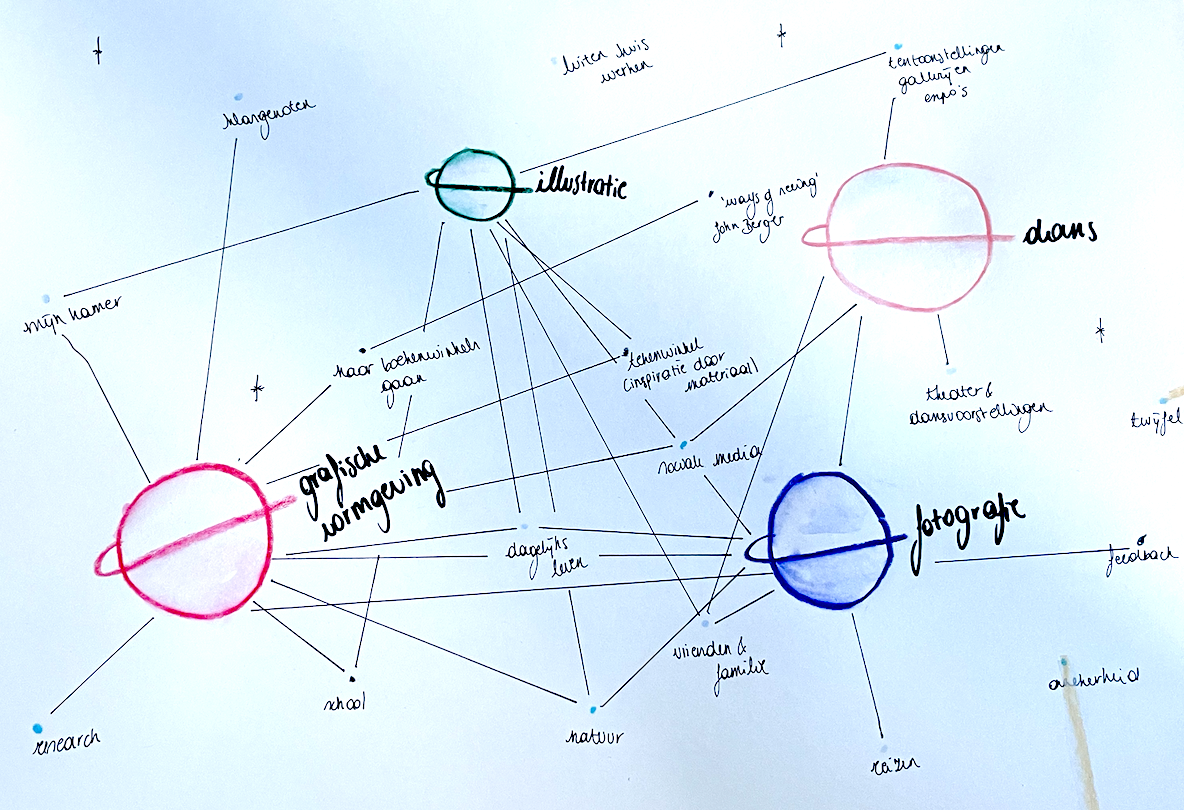 buiten huis
werken
tentoonstellingen
gallerijen
expo's
klasgenoten
illustratie
'ways of seeing'
John Berger
dans
mijn kamer
naar boekenwinkels
gaan
tekenwinkel
(inspiratie door
materiaal)
theater &
dansvoorstellingen
twijfel
grafische
vormgeving
sociale media
fotografie
dagelijks
leven
feedback
vrienden &
familie
onzekerheid
school
research
natuur
reizen